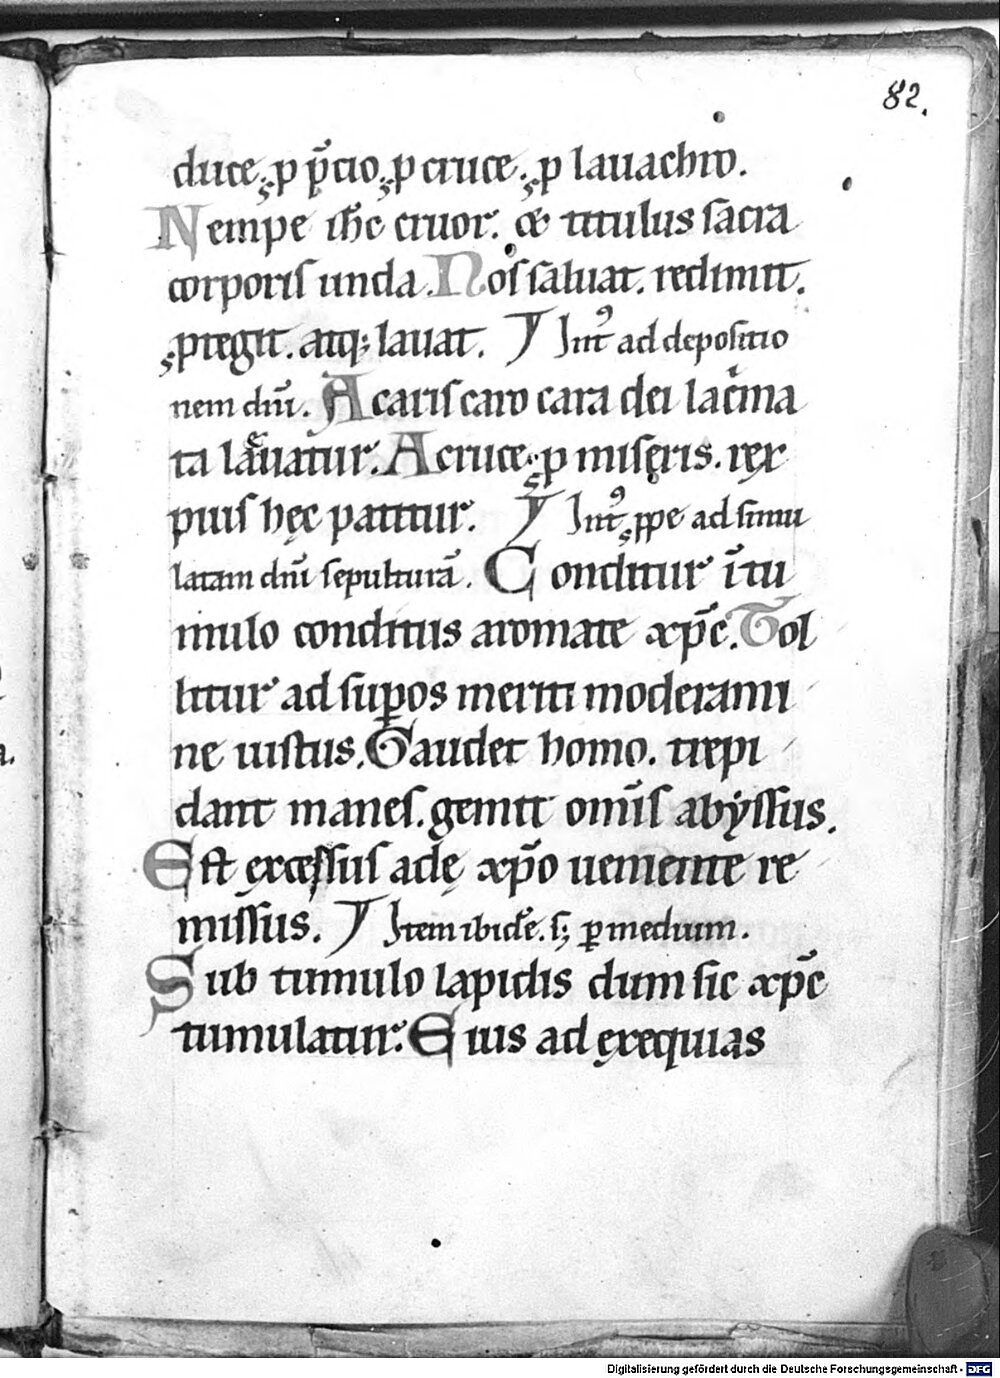 82.
duce, ꝓ p̄cio, ꝓ cruce, ꝓ lauachro.
Nempe ih̄c cruor. & titulus sacra
corporis unda. Nos saluat. redimit.
ꝓtegit. atq; lauat. Intꝰ ad depositio
nem dnī. A caris caro cara dei lac̄ma
ta lauatur. A cruce ꝓ miseris. rex
pius hęc patitur. Intꝰ ꝓpe ad simu
latam dnī sepulturā. Conditur ī tu
mulo conditus aromate xp̄c. Tol
litur ad suꝑos meriti moderami
ne iustus. Gaudet homo. trepi
dant manes. gemit omīs abẏssus.
Est excessus adę xp̄o ueniente re
missus. Item ibidē. s; ꝑ medium.
Sub tumulo lapidis dum sic xp̄c
tumulatur. Eius ad exequias
Digitalisierung gefördert durch die Deutsche Forschungsgemeinschaft - DFG